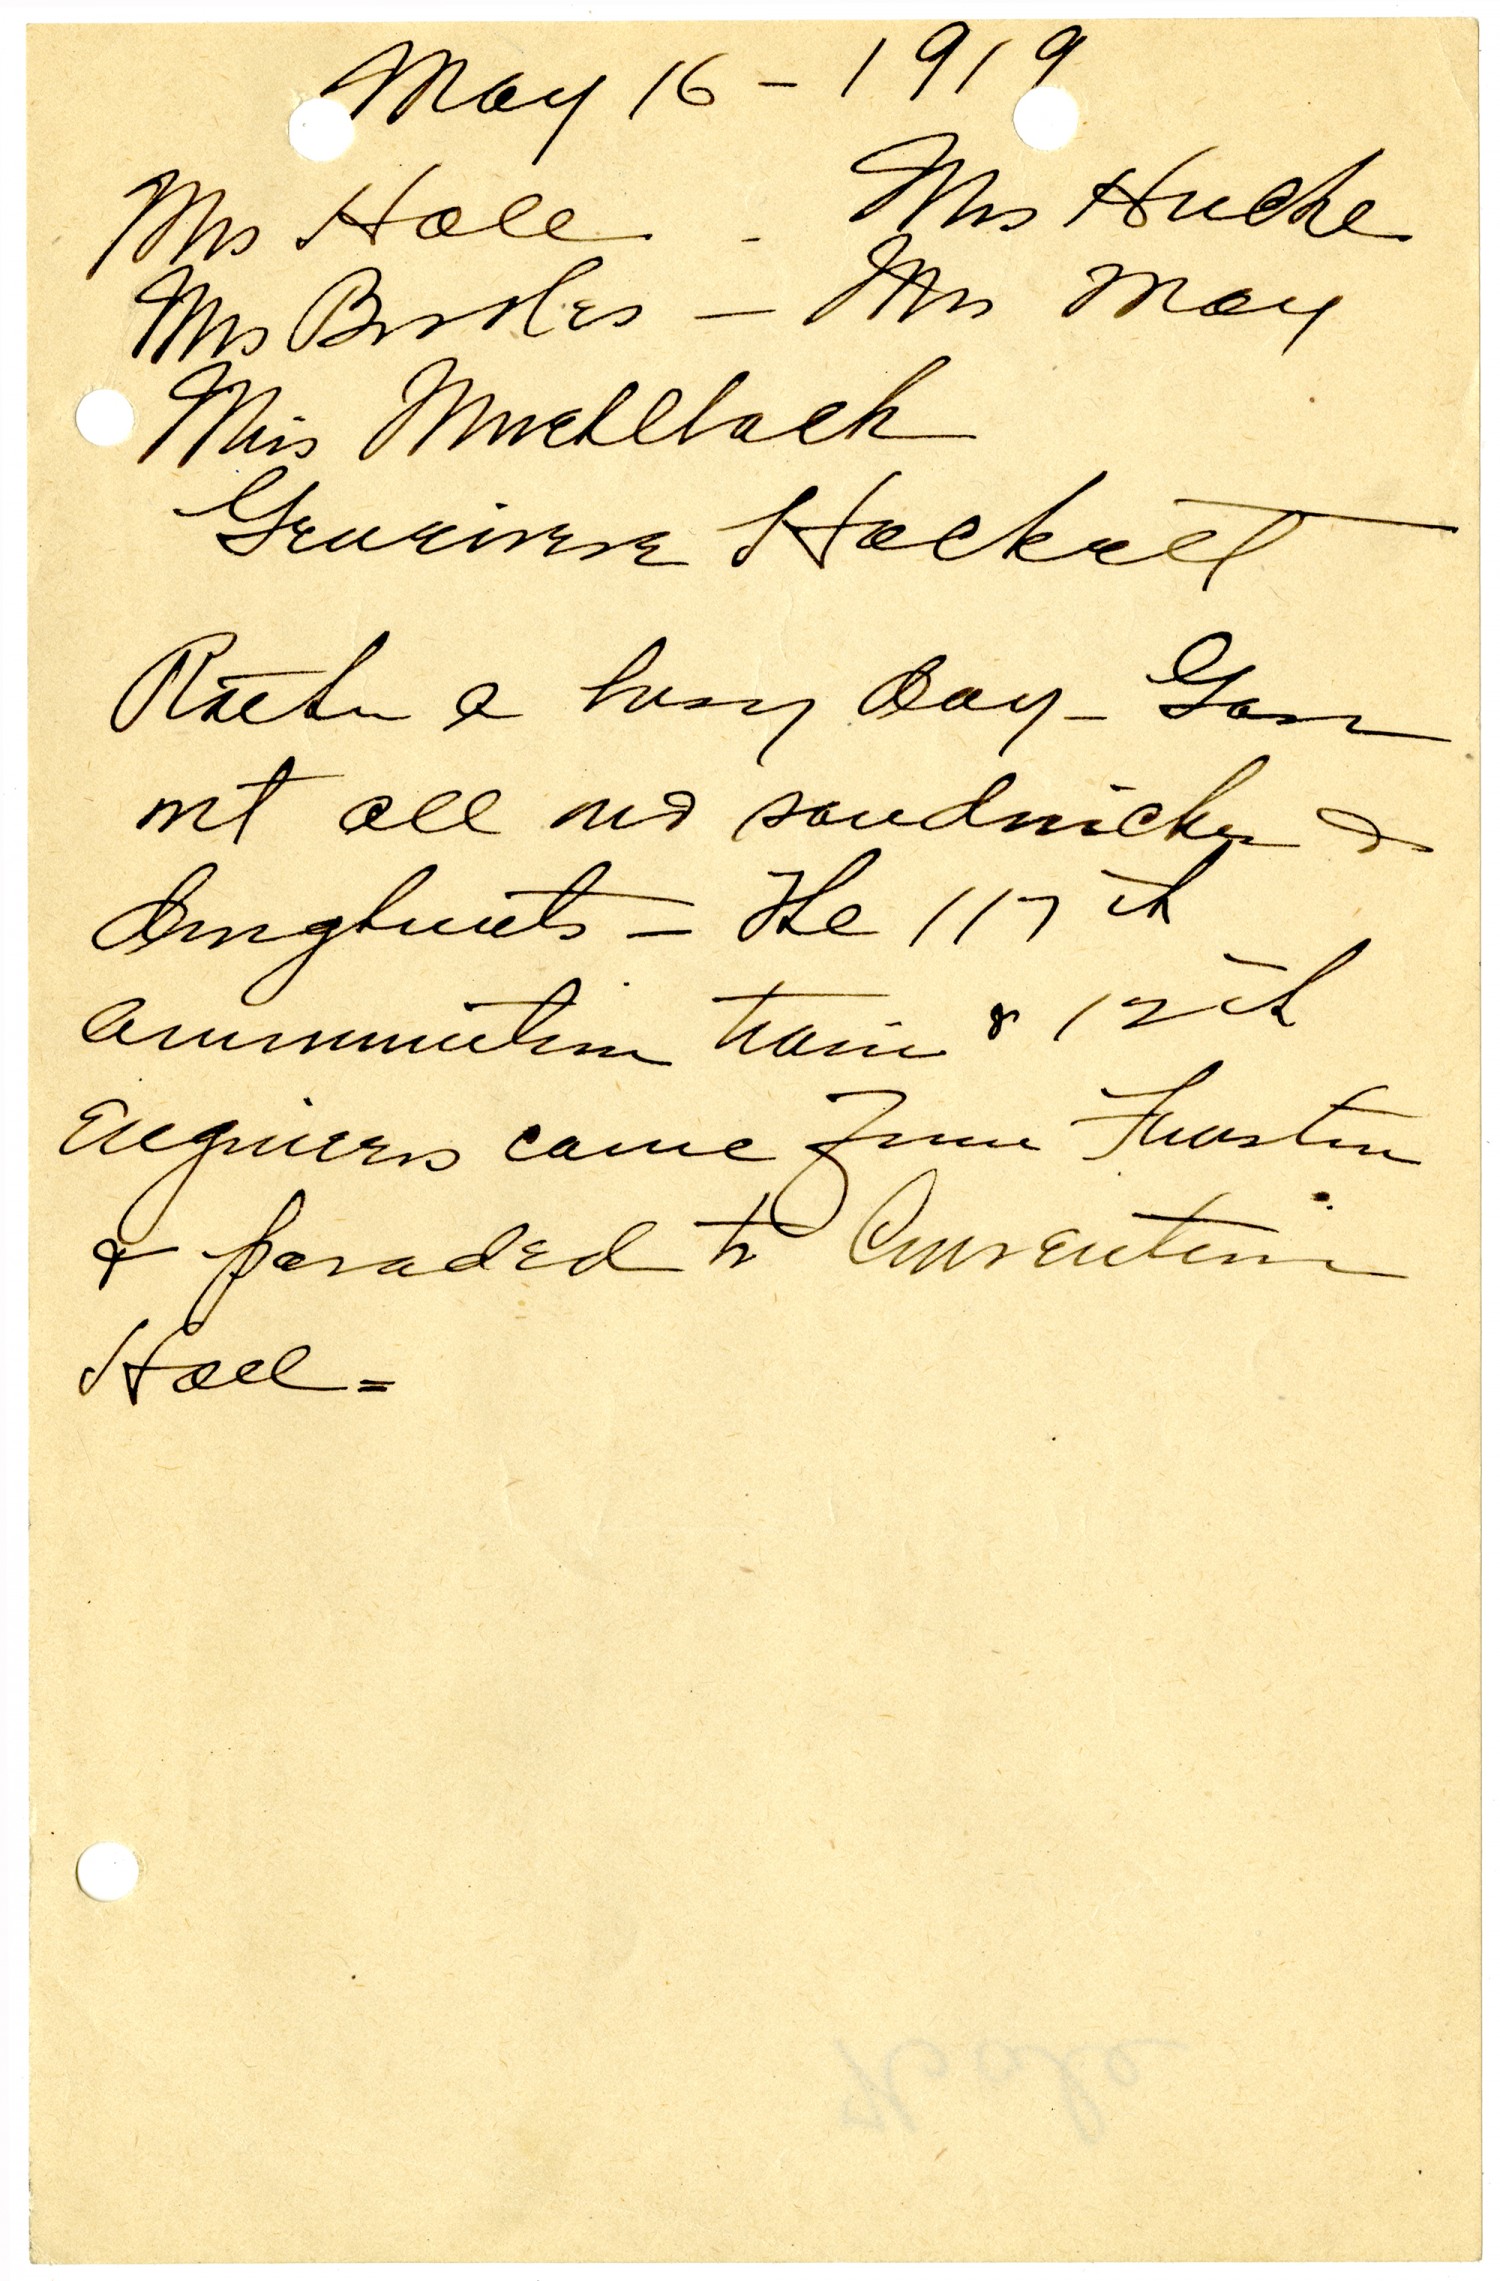 May 16 - 1919
Mrs Hall - Mrs Hucke
Mrs Brookes - Mrs May
Miss Muehlbach
Genevieve Hackett
Rather a busy day - Gave
out all our sandwiches &
doughnuts - The 117th
ammunition train & 12th
Engineers came from Funston
& paraded to Convention
Hall =